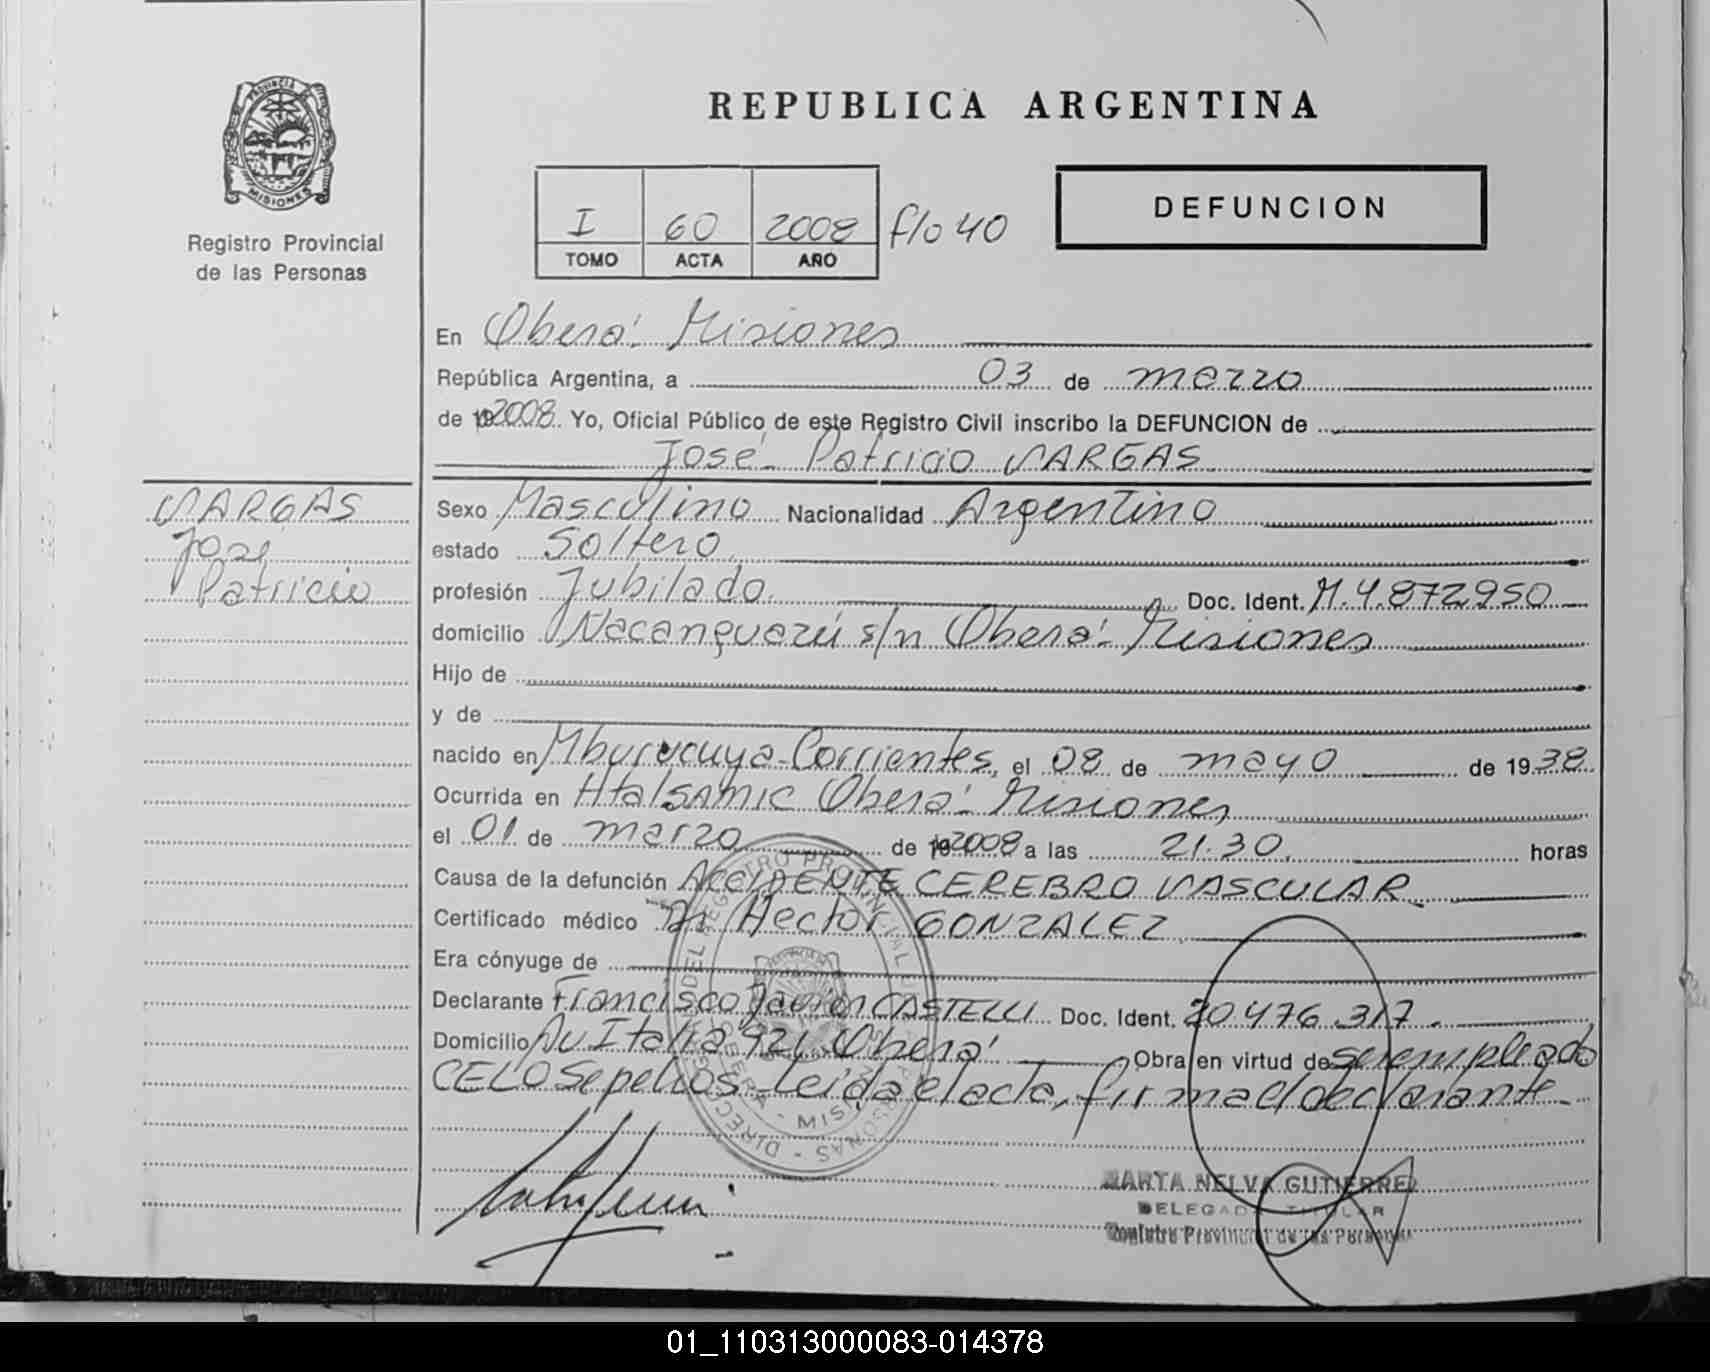 REPUBLICA ARGENTINA
PROVINCIA DE
MISIONES
Registro Provincial
de las Personas
I 60 2008 f/o 40
TOMO ACTA AÑO
DEFUNCION
En Oberá Misiones
República Argentina, a 03 de marzo
de 19 2008. Yo, Oficial Público de este Registro Civil inscribo la DEFUNCION de
José Patricio VARGAS
VARGAS
José
Patricio
Sexo Masculino Nacionalidad Argentino
estado Soltero
profesión Jubilado Doc. Ident. M.4.872.950
domicilio Ñacanguazú s/n Oberá Misiones
Hijo de
y de
nacido en Mburucuya-Corrientes, el 08 de mayo de 1938
Ocurrida en Htal SAMIC Oberá Misiones
el 01 de marzo de 19 2008 a las 21.30 horas
Causa de la defunción ACCIDENTE CEREBRO VASCULAR
Certificado médico Dr Hector GONZALEZ
Era cónyuge de
Declarante Francisco Javier CASTELLI Doc. Ident. 20.476.317.
Domicilio Av Italia 921 Oberá Obra en virtud de ser empleado
CELO Sepelios. Leida el acta, firma el declarante
MARTA NELVA GUTIERREZ
DELEGADA TITULAR
Registro Provincial de las Personas
01_110313000083-014378